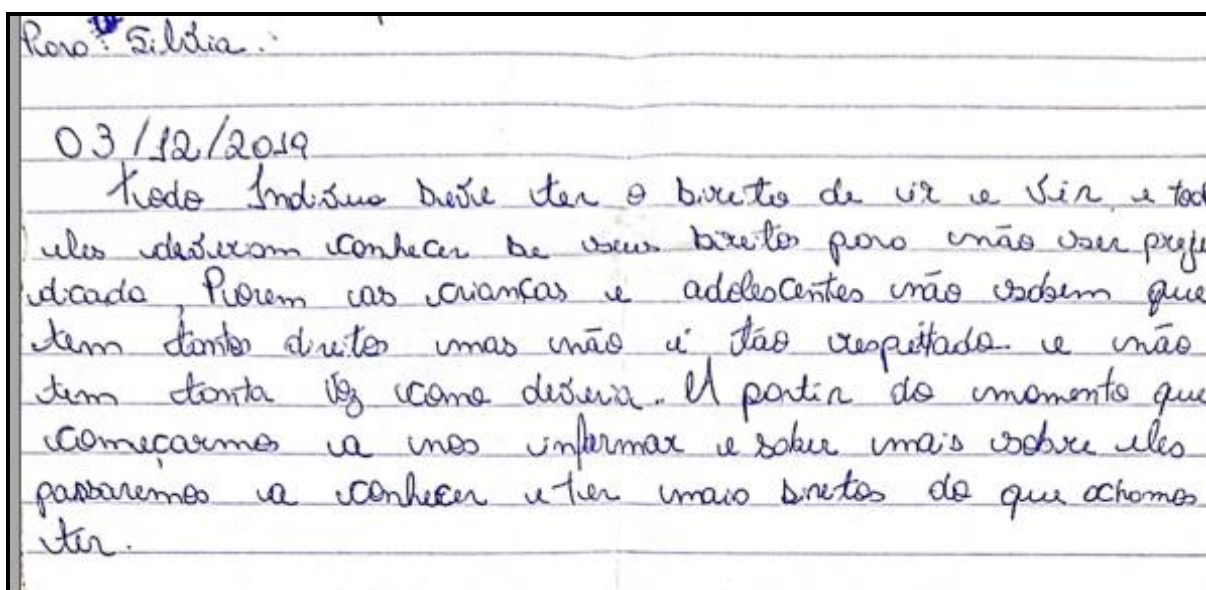 Para: Silvia.:
03/12/2019
Todo Indivuo deve ter o direito de ir e vir, e tod
eles deveram conhecer de seus direitos para não ser preju
dicado, Porem as crianças e adolescentes não sabem que
tem tantos direitos mas não é tão respeitado e não
tem tanta voz como deveria. A partir do momento que
começarmos a nos informar e saber mais sobre eles
passaremos a conhecer e ter mais direitos do que achamos
ter.